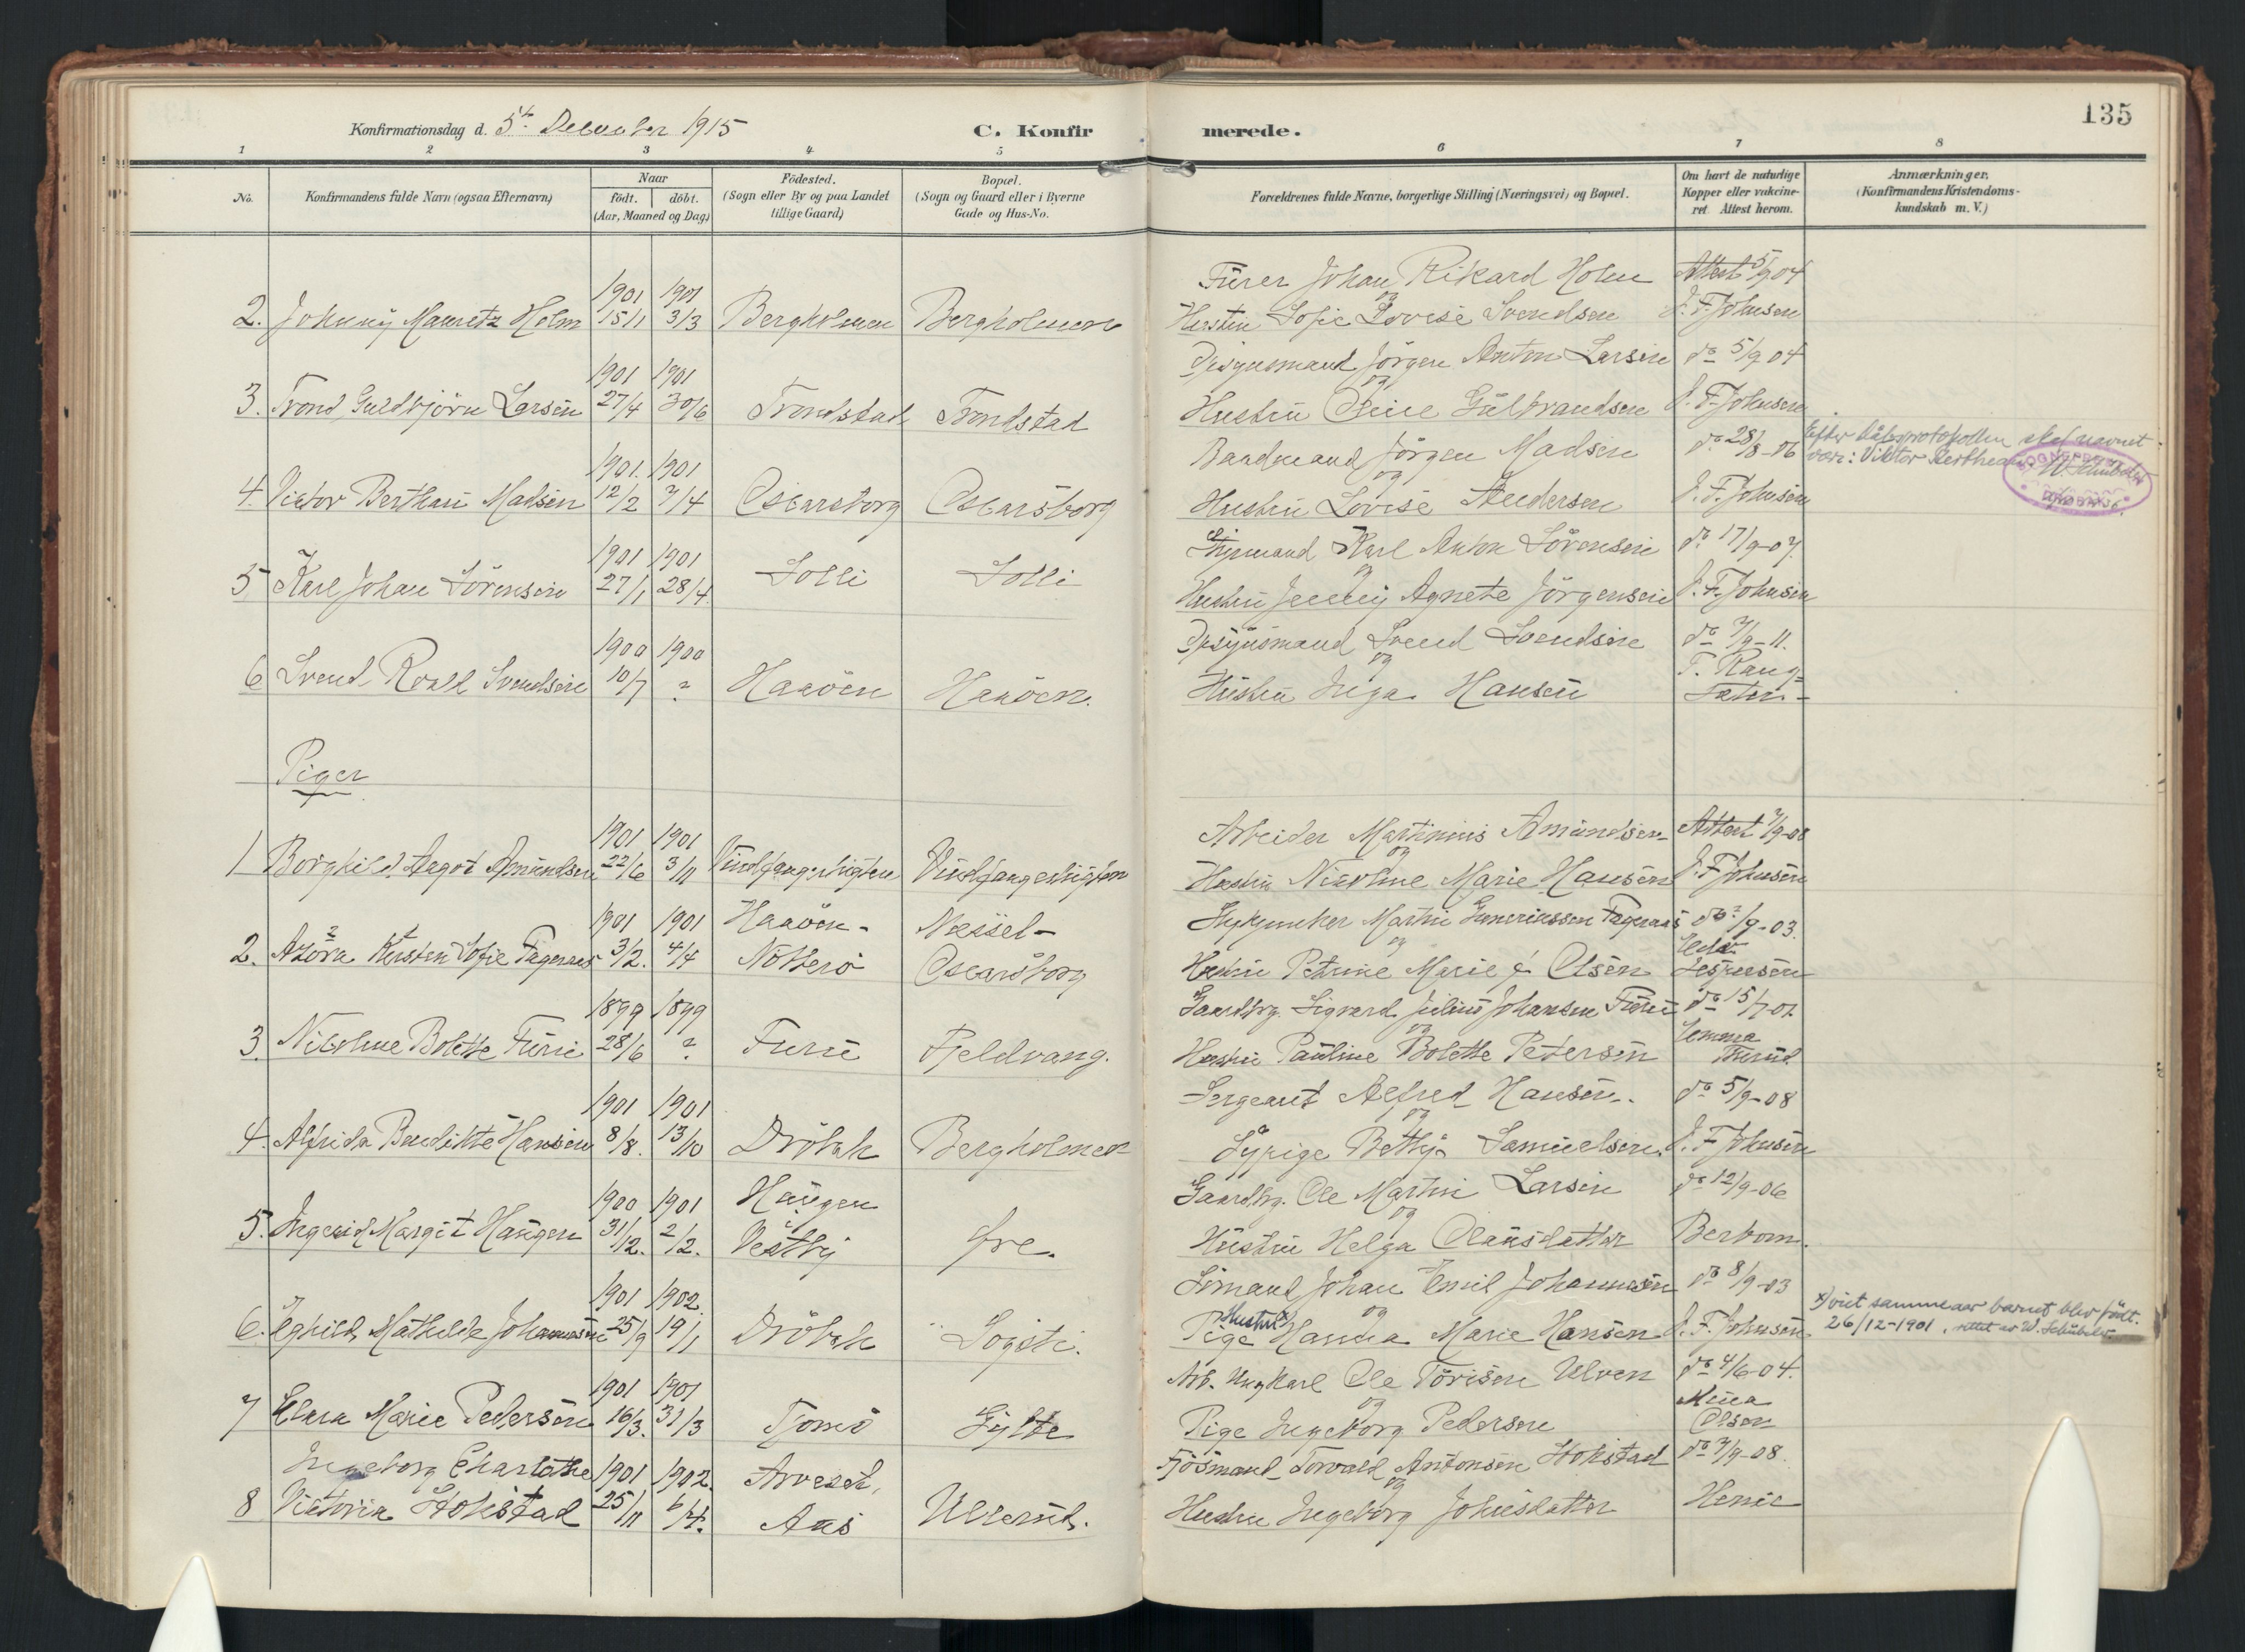 135
Konfirmationsdag d. 5te December 1915
C. Konfirmerede.
1 2 3 4 5 6 7 8
No.
Konfirmandens fulde Navn (ogsaa Efternavn)
Naar
født. døbt.
(Aar, Maaned og Dag)
Födested.
(Sogn eller By og paa Landet
tillige Gaard)
Bopæl.
(Sogn og Gaard eller i Byerne
Gade og Hus-No.
Forældrenes fulde Navne, borgerlige Stilling (Næringsvei) og Bopæl.
Om havt de naturlige
Kopper eller vakcine-
ret. Attest herom.
Anmærkninger.
(Konfirmandens Kristendoms-
kundskab m. V.)
1901 1901 Furer Johan Rikard Holm Attest 5/9 04
2. Johnny Mauretz Holm 15/1 3/3 Bergholmen Bergholmen og Hustru Sofie Lovise Svendsen J. F. Johnsen
1901 1901 Opsynsmand Jörgen Anton Larsen do 5/9 04
3. Trond Guldbjörn Larsen 27/4 30/6 Trondstad Trondstad og Hustru Oline Gulbrandsen J. F. Johnsen
1901. 1901 Baadmand Jörgen Madsen do 28/8-06 Efter dåbsprotokollen skal navnet
være: Viktor Bertheau W. Schübeler
4. Victor Berthau Madsen 12/2 7/4 Oscarsborg Oscarsborg og Hustru Lovise Andersen J. F. Johnsen
1901 1901 Karl Anton Sörensen do 17/9-07
5 Karl Johan Sörensen 27/1 28/4 Solli Solli og Hustru Jenny Agnete Jörgensen J. F. Johnsen
1900 1900 Opsynsmand Svend Svendsen do 7/9-11.
6 Svend Roald Svendsen 10/7 ? Haaöen Haaöen. og Hustru Inga Hansen T. Rang=
sæter-
Piger
1901 1901 Arbeider Martinius Amundsen Attest 7/9-08
1 Borghild Aagot Amundsen 22/6 3/11 Vindfangerhigten Vindfangerhigten og Hustru Nicoline Marie Hansen J. F. Johnsen
1901 1901 Haaöen- Næssel- Martin Fageraas do 2/9-03.
2. Azora Kirsten Sofie Fageraas 3/2. 4/4 Nötterö Oscarsborg og Hustru Petrine Marie f. Olsen Jespersen
1899 1899 Gaardbrg. Sigvard Julius Johansen Furu do 15/7-01
3. Nicoline Bolette Furu 28/6 ? Furu Fjeldvang. og Hustru Pauline Bolette Petersen Emma
1901 1901 Sergeant Alfred Hansen. do 5/9-08
4. Alfrida Benditte Hansen 8/8. 13/10 Dröbak Bergholmen og Sypige Betty Samuelsen. J. F. Johnsen
1900 1901 Haugen Gaardbrg. Ole Martin Larsen do 12/9-06
5. Ingerid Margit Haugen 31/12. 2/2. Vestby Ere. og Hustru Helga Olausdatter Berbom.
1901 1902. Sömand Johan Emil Johannesen do 8/9-03 x) viet samme aar barnet blev født.
26/12-1901, rettet av W. Schübeler
6. Eghild Mathilde Johannesen 25/9 19/1 Dröbak Sogsti. og Hustru x) Pige Hanna Marie Hansen J. F. Johnsen
1901 1901 Arb. Ungkarl Ole Torisen Ulven do 4/6-04.
7 Clara Marie Pedersen 16/3. 31/3 Tjomö Sylte og Pige Ingeborg Pedersen Mina
Olsen
Ingeborg Charlothe 1901 1902. Arveset, Fjösmand Torvald Antonsen Hokstad do 7/9-08.
8 Viktoria Hokstad 25/11 6/4. Aas Ullerud. og Hustru Ingeborg Johnsdatter Henie